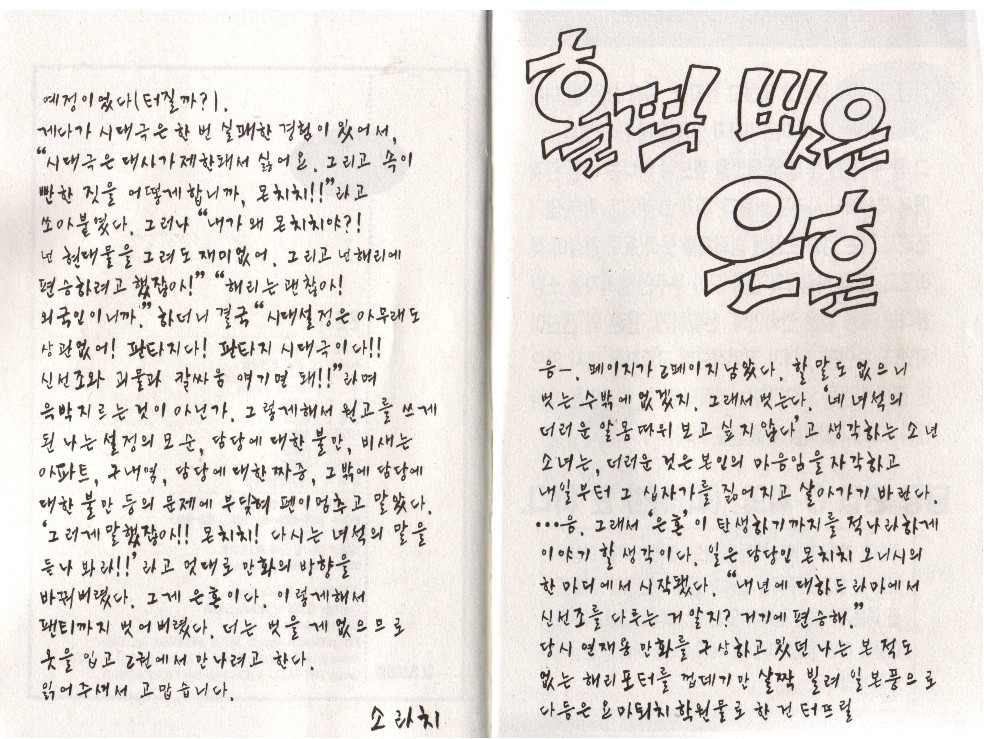 홀딱 벗은
은혼
음-. 페이지가 2페이지 남았다. 할 말도 없으니
벗는 수밖에 없겠지. 그래서 벗는다. '네 녀석의
더러운 알몸 따위 보고 싶지 않다'고 생각하는 소년
소녀는, 더러운 것은 본인의 마음임을 자각하고
내일부터 그 십자가를 짊어지고 살아가기 바란다.
…음. 그래서 '은혼'이 탄생하기까지를 적나라하게
이야기 할 생각이다. 일은 담당인 몬치치 오니시의
한 마디에서 시작됐다. "내년에 대하드라마에서
신선조를 다루는 거 알지? 거기에 편승해."
당시 연재용 만화를 구상하고 있던 나는 본 적도
없는 해리포터를 껍데기만 살짝 빌려 일본풍으로
다듬은 요마퇴치 학원물로 한 건 터뜨릴
예정이었다(터질까?).
게다가 시대극은 한 번 실패한 경험이 있어서,
"시대극은 대사가 제한돼서 싫어요. 그리고 속이
빤한 짓을 어떻게 합니까, 몬치치!!"라고
쏘아붙였다. 그러나 "내가 왜 몬치치야?!
넌 현대물을 그려도 재미없어. 그리고 넌 해리에
편승하려고 했잖아!" "해리는 괜찮아!
외국인이니까." 하더니 결국 "시대설정은 아무래도
상관없어! 판타지다! 판타지 시대극이다!!
신선조와 괴물과 칼싸움 얘기면 돼!!"라며
윽박지르는 것이 아닌가. 그렇게 해서 원고를 쓰게
된 나는 설정의 모순, 담당에 대한 불만, 비새는
아파트, 구내염, 담당에 대한 짜증, 그밖에 담당에
대한 불만 등의 문제에 부딪혀 펜이 멈추고 말았다.
'그러게 말했잖아!! 몬치치! 다시는 녀석의 말을
듣나 봐라!!' 라고 멋대로 만화의 방향을
바꿔버렸다. 그게 은혼이다. 이렇게해서
팬티까지 벗어버렸다. 더는 벗을 게 없으므로
옷을 입고 2권에서 만나려고 한다.
읽어주셔서 고맙습니다.
소라치